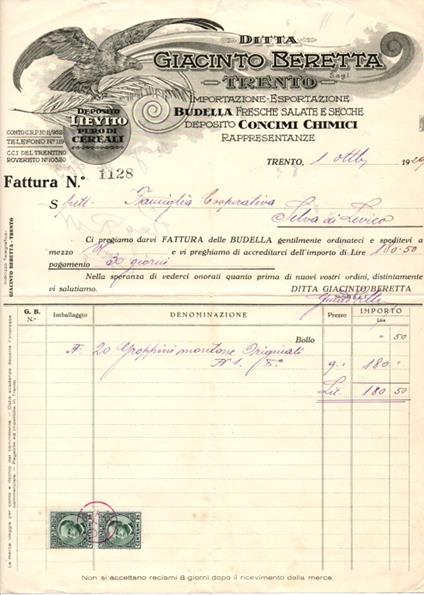 DITTA
GIACINTO BERETTA
TRENTO
IMPORTAZIONE-ESPORTAZIONE
BUDELLA FRESCHE SALATE E SECCHE
DEPOSITO CONCIMI CHIMICI
RAPPRESENTANZE
DEPOSITO
LIEVITO
PURO DI
CEREALI
CONTO C.P. N° 11/962
TELEFONO N° 119
C.C.I. DEL TRENTINO
ROVERETO N° 10520
TRENTO, 1 Ottb. 1929
Fattura N.° 1128
Spett. Famiglia Cooperativa
Selva di Levico
Ci pregiamo darvi FATTURA delle BUDELLA gentilmente ordinateci e speditevi a
mezzo e vi preghiamo di accreditarci dell'importo di Lire 180.50
pagamento 30 giorni
Nella speranza di vederci onorati quanto prima di nuovi vostri ordini, distintamente
vi salutiamo. DITTA GIACINTO BERETTA
Indirizzo Telegrafico:
GIACINTO BERETTA - TRENTO
G. B. N.° Imballaggio DENOMINAZIONE Prezzo IMPORTO
Lire
Bollo " 50
N. 20 Groppini montone Originali
N 1. 9.- 180 "
Lit. 180 50
Non si accettano reclami 8 giorni dopo il ricevimento della merce.